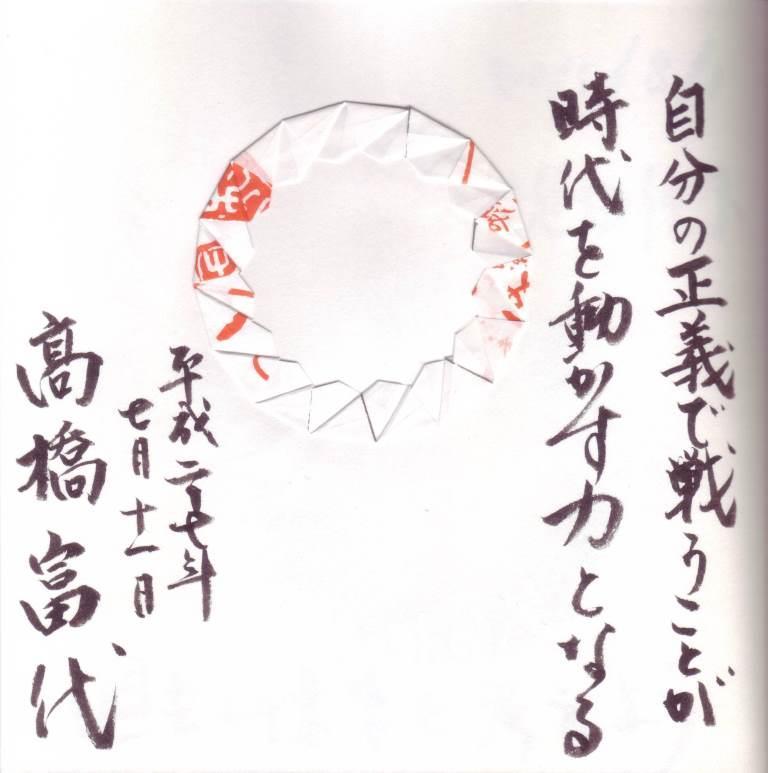 自分の正義で戦うことが
時代を動かす力となる
平成二十七年
七月十一日
高橋富代